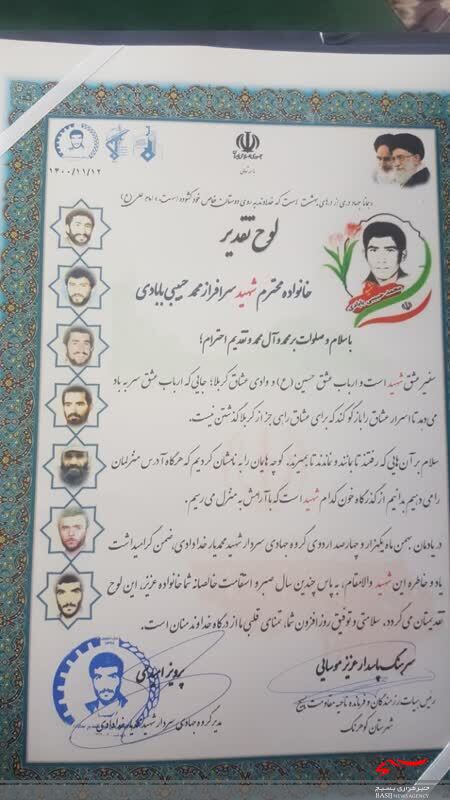 جمهوری اسلامی ایران
۱۴۰۰/۱۱/۱۲
جهاد دری از درهای بهشت است که خداوند به روی دوستان خاص خود گشوده است، «امام علی (ع)
لوح تقدیر
خانواده محترم شهید سرافراز محمد حبیبی بابادی
محمد حبیبی بابادی
با سلام و صلوات بر محمد و آل محمد و تقدیم احترام؛
سفیر عشق شهید است و ارباب عشق حسین (ع) و وادی عشاق کربلا؛ جایی که ارباب عشق سر به باد
می دهد تا اسرار عشاق را بازگو کند که برای عشاق راهی جز از کربلا گذشتن نیست.
سلام بر آن هایی که رفتند تا بمانند و نماندند تا بمیرند، کوچه هایمان را به نامشان کردیم که هرگاه آدرس منزلمان
را می دهیم بدانیم از گذرگاه خون کدام شهید است که با آرامش به منزل می رسیم.
در یادمان بهمن ماه یکهزار و چهارصد اردوی گروه جهادی سردار شهید محمدیار خدادادی، ضمن گرامیداشت
یاد و خاطره این شهید والامقام، به پاس چندین سال صبر و استقامت خالصانه شما خانواده عزیز، این لوح
تقدیمتان می گردد. سلامتی و توفیق روزافزون شما، تمنای قلبی ما از درگاه خداوند منان است.
سرهنگ پاسدار عزیز موسائی
رئیس هیات رزمندگان و فرمانده ناحیه مقاومت بسیج
شهرستان کوهرنگ
پرویز احمدی
مدیر گروه جهادی سردار شهید محمدیار خدادادی
خبرگزاری بسیج
BASIJ NEWS AGENCY